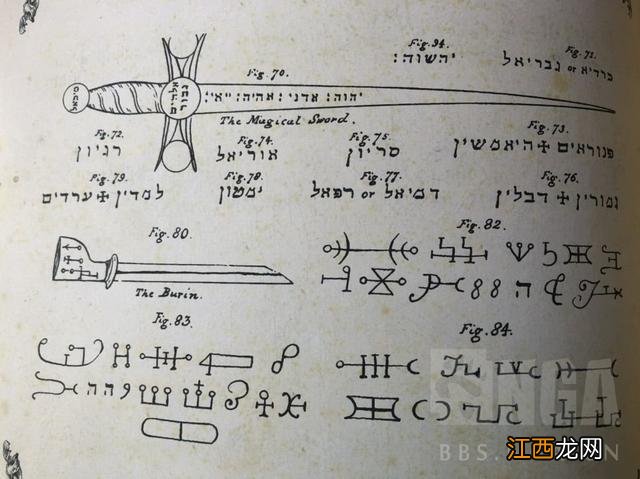 Fig. 94.
יהשוה:
Fig. 71.
כרדיא or גבריאל
Fig. 70.
יהוה: אדני: אהיה: ייאי:
The Magical Sword.
Fig. 72.
רגיון
Fig. 74.
אוריאל
Fig. 75.
סריון
Fig. 73.
פנוראים ✠ היאמשין
Fig. 79.
למדין ✠ ערדים
Fig. 78.
ימטון
Fig. 77.
דמיאל or רפאל
Fig. 76.
גמורין ✠ דבלין
Fig. 80.
The Burin.
Fig. 82.
Fig. 83.
Fig. 84.
NGA
BBS.
江西龙网